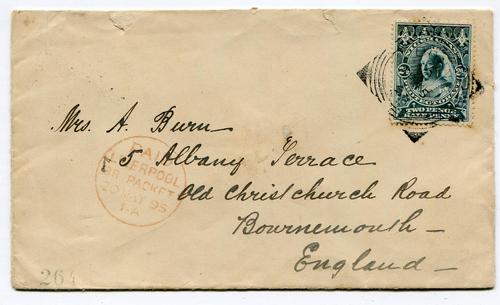 TWO PENCE
HALF PENNY
Mrs. A. Burn
5 Albany Terrace
Old Christchurch Road
Bournemouth –
England –
PAID
LIVERPOOL
BR PACKET
20 MY 95
264